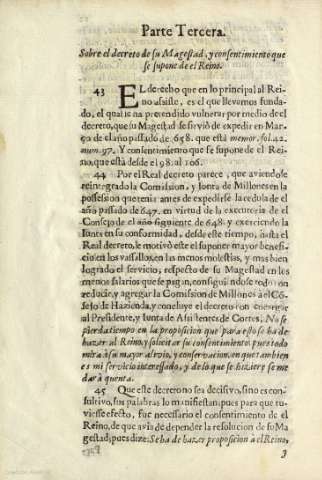 Parte Tercera.
Sobre el decreto de su Magestad, y consentimiento que
se supone de el Reino.
43 EL derecho que en lo principal al Rei-
no assiste, es el que llevamos funda-
do, el qual se ha pretendido vulnerar por medio de el
decreto, que su Magestad se sirviò de expedir en Mar-
ço de el año passado de 658. que està memor. fol. 22.
num. 97. Y consentimiento que se supone de el Rei-
no, que està desde el 98. al 106.
44 Por el Real decreto parece, que aviendose
reintegrado la Comission, y Iunta de Millones en la
possession que tenia antes de expedirse la cedula de el
año passado de 647. en virtud de la executoria de el
Consejo de el año siguiente de 648. y exerciendo la
Iunta en su conformidad, desde este tiempo, hasta el
Real decreto, le motivò este el suponer mayor benefi-
cio en los vassallos, en las menos molestias, y mas bien
logrado el servicio, respecto de su Magestad en los
menos salarios que se pagan, consiguiẽdose todo con
reducir, y agregar la Comission de Millones àel Cõ-
sejo de Hazienda, y concluye el decreto con encargar
al Presidente, y Iunta de Assistentes de Cortes, No se
pierda tiempo en la proposicion que para esto se ha de
hazer al Reino, y solicitar su consentimiento, pues todo
mira à su mayor alivio, y conservacion, en que tambien
es mi servicio interessado, y de lo que se hiziere se me
darà quenta.
45 Que este decreto no sea decisivo, sino es con-
sultivo, sus palabras lo manifiestan: pues para que tu-
viesse efecto, fue necessario el consentimiento de el
Reino, de que avia de depender la resolucion de su Ma
gestad; pues dize: Se ha de hazer proposicion à el Reino,